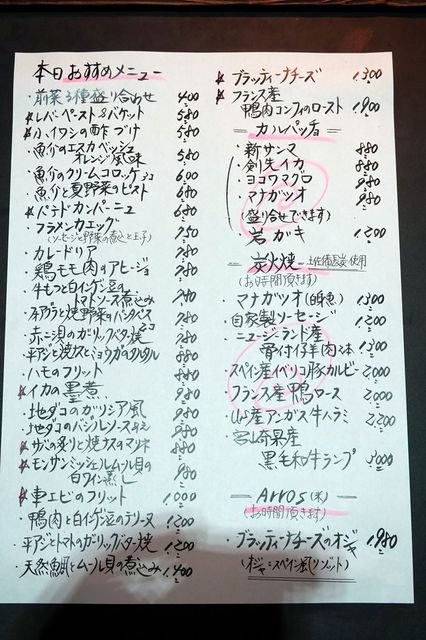 本日おすすめメニュー
・前菜3種盛り合わせ 400
★レバーペースト&バゲット 580
★小イワシの酢づけ 580
・魚介のエスカベッシュ
オレンジ風味 580
・魚介のクリームコロッケ 600
・魚介と夏野菜のピスト 680
★パテドカンパーニュ 680
・フラメンカエッグ 750
(ソーセージと野菜の煮込と玉子)
・カレードリア 780
・鶏モモ肉のアヒージョ 780
・牛もつと白インゲン豆の
トマトソース煮込み 780
焼野菜の 780
のガリックバター焼 880
・平アジと焼ナスとミョウガのタルタル 880
・ハモのフリット 880
★イカの墨煮 980
・地ダコのガリシア風 980
・地ダコのバジルソース 980
★サバの炙りと焼ナスのマリネ 880
★モンサンミッシェルムール貝の
白ワイン蒸し 980
★車エビのフリット 1,000
・鴨肉と白インゲン豆のテリーヌ 1,200
・平アジとトマトのガリックバター焼 1,200
・天然鯛とムール貝の煮込み 1,400
★ブラッティーナチーズ 1,300
★フランス産
鴨肉コンフィのロースト 1,900
カルパッチョ
・新サンマ 880
・剣先イカ 880
・ヨコワマグロ 980
・マナガツオ 980
(盛り合せできます)
・岩ガキ 1,200
炭火焼 土佐備長炭使用
(お時間頂きます)
・マナガツオ(白味色) 1,300
・自家製ソーセージ 1,200
・ニュージーランド産
骨付仔羊肉2本 1,300
・スペイン産イベリコ豚カルビー 2,000
・フランス産鴨ロース 2,200
・US産アンガス牛ハラミ 2,200
・宮崎県産
黒毛和牛ランプ 3,000
Arros(米)
(お時間頂きます)
・ブラッティーナチーズのオジャ 1,980
(オジャ=スペイン風リゾット)